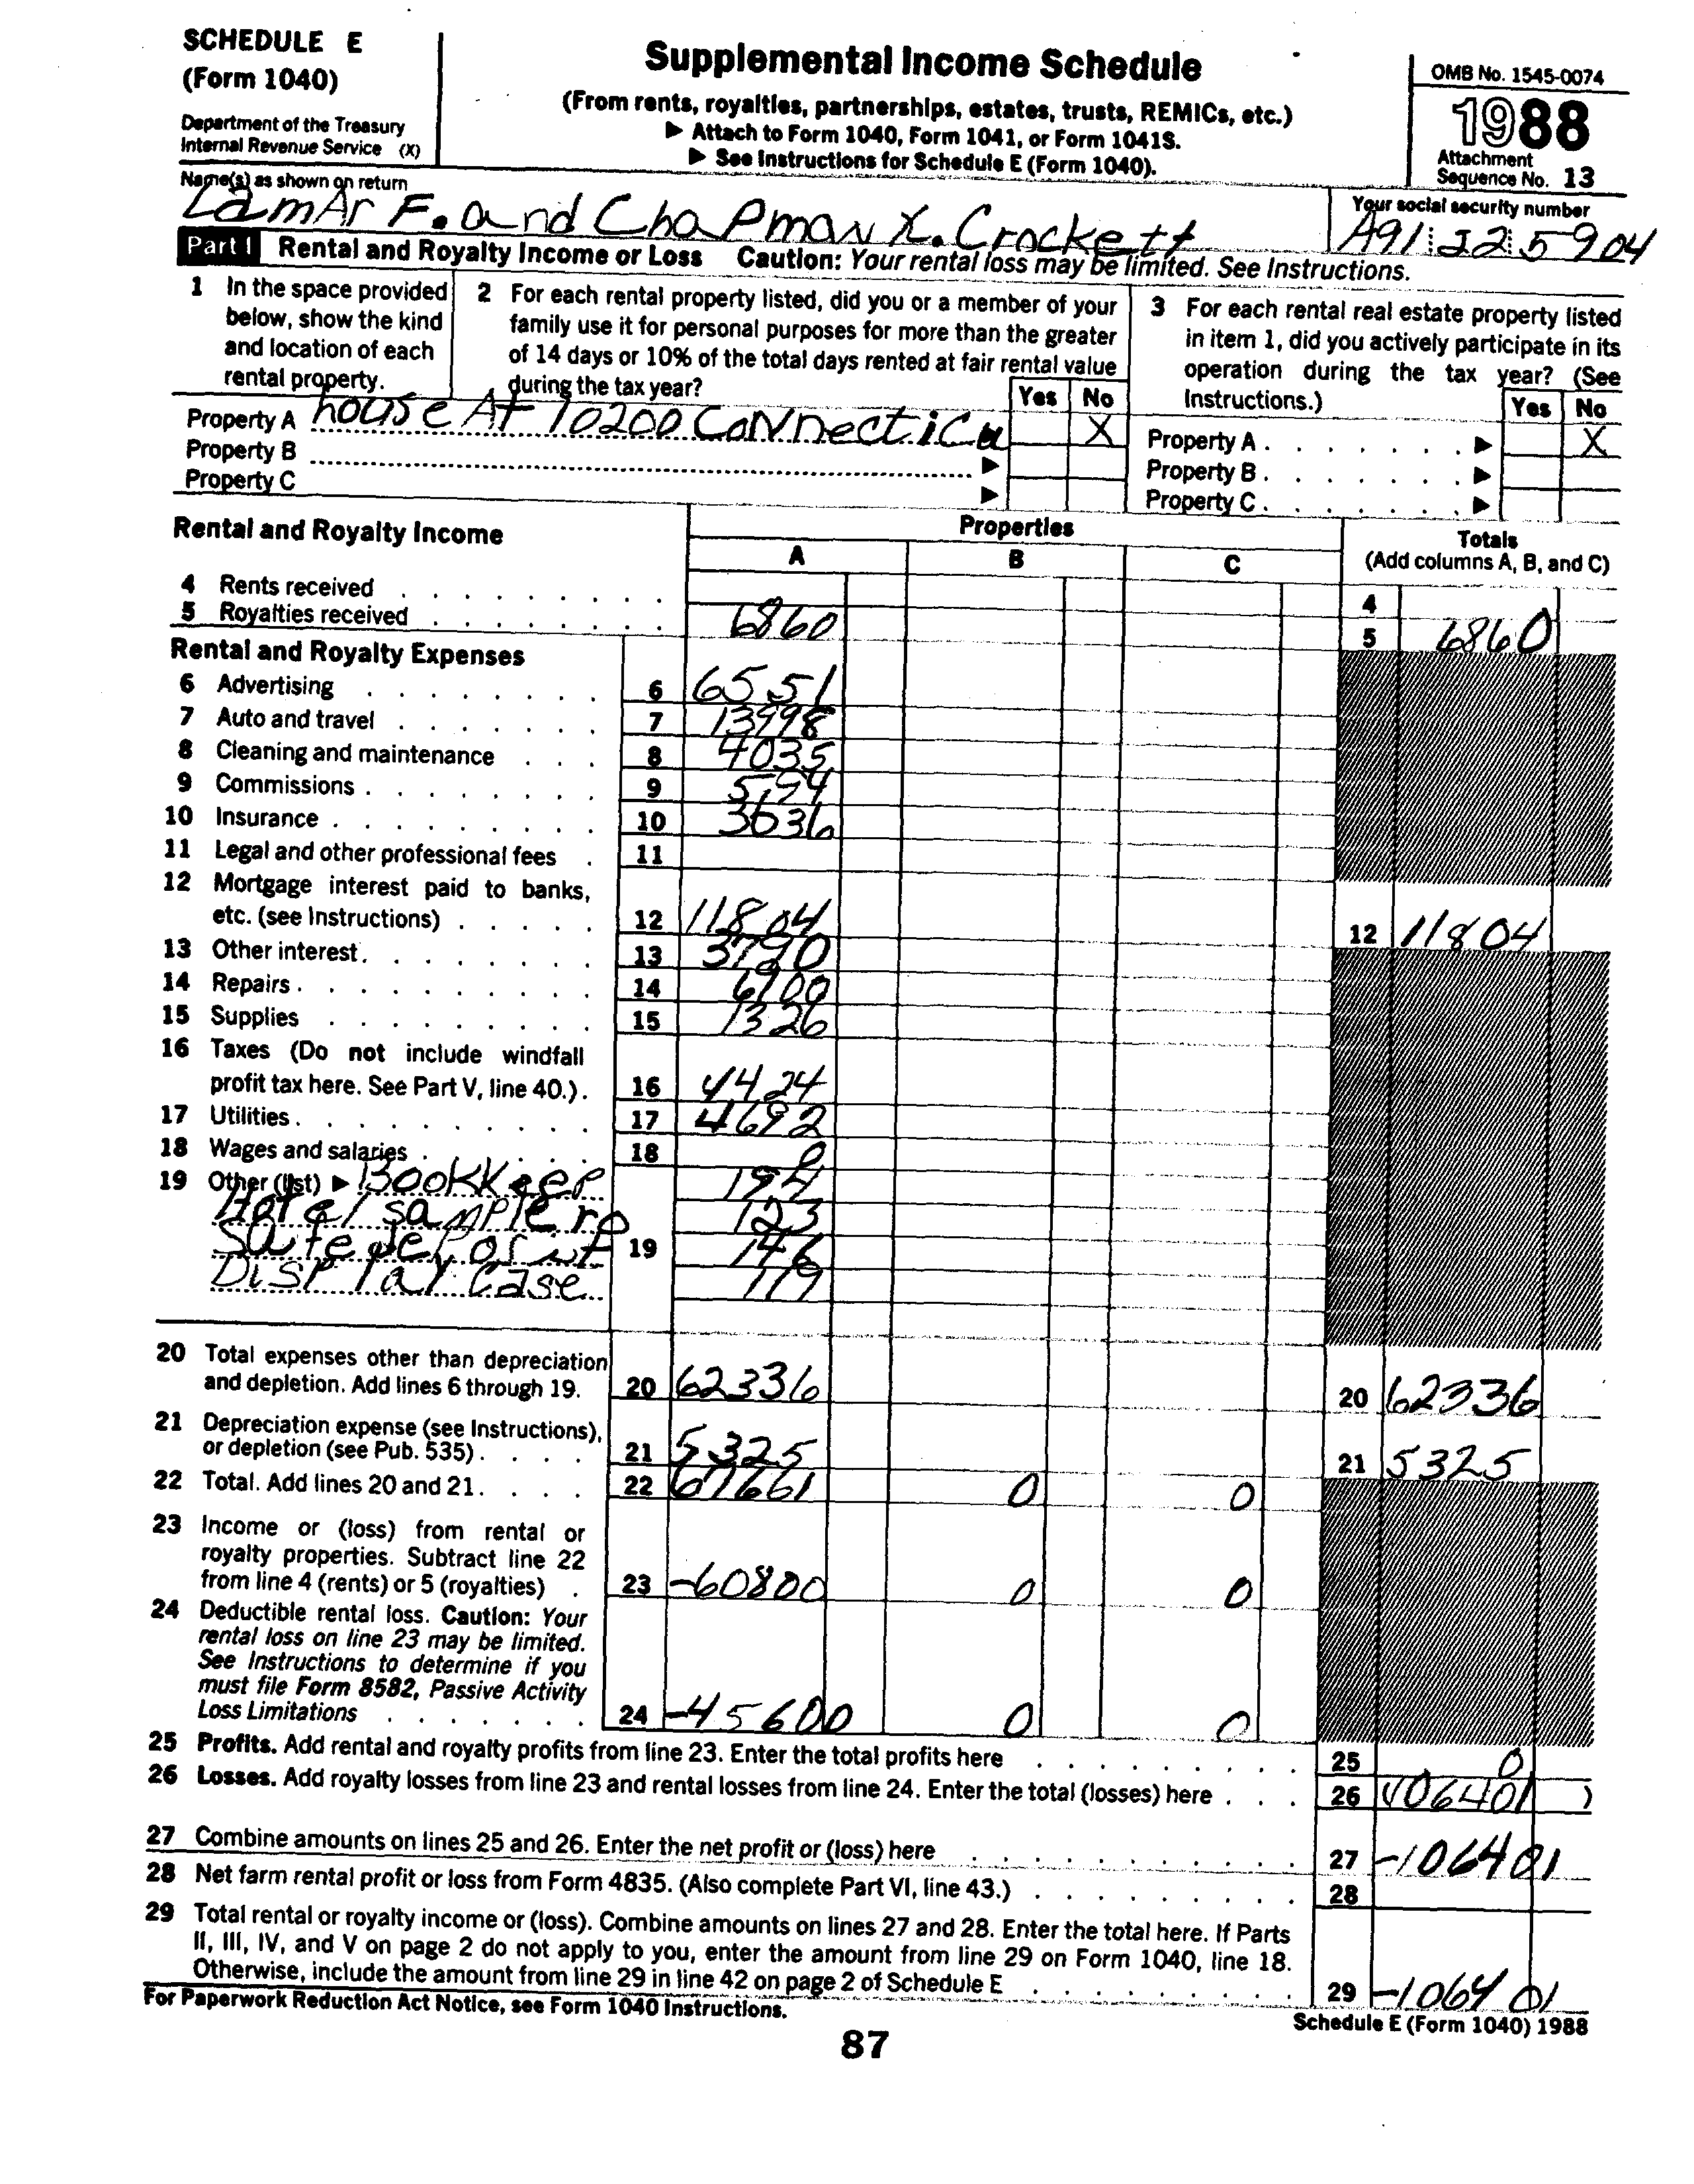 SCHEDULE E
(Form 1040)
Department of the Treasury
Internal Revenue Service (X)
Supplemental Income Schedule
(From rents, royalties, partnerships, estates, trusts, REMICs, etc.)
▶ Attach to Form 1040, Form 1041, or Form 1041S.
▶ See Instructions for Schedule E (Form 1040).
OMB No. 1545-0074
1988
Attachment
Sequence No. 13
Name(s) as shown on return
LamAr F. and ChaPman X. Crockett
Your social security number
A91 22 5904
Part I Rental and Royalty Income or Loss Caution: Your rental loss may be limited. See Instructions.
1 In the space provided
below, show the kind
and location of each
rental property.
2 For each rental property listed, did you or a member of your
family use it for personal purposes for more than the greater
of 14 days or 10% of the total days rented at fair rental value
during the tax year?
Yes No
3 For each rental real estate property listed
in item 1, did you actively participate in its
operation during the tax year? (See
Instructions.)
Yes No
Property A house At 10200 CoNnecticu X
Property B
Property C
Property A X
Property B
Property C
Rental and Royalty Income
Properties
A B C
Totals
(Add columns A, B, and C)
4 Rents received 4
5 Royalties received 6860 5 6860
Rental and Royalty Expenses
6 Advertising 6 6551
7 Auto and travel 7 13998
8 Cleaning and maintenance 8 4035
9 Commissions 9
10 Insurance 10 3636
11 Legal and other professional fees 11
12 Mortgage interest paid to banks,
etc. (see Instructions) 12 11804 12 11804
13 Other interest 13 3790
14 Repairs 14 6900
15 Supplies 15 1326
16 Taxes (Do not include windfall
profit tax here. See Part V, line 40.) 16 4424
17 Utilities 17 4692
18 Wages and salaries 18 0
19 Other (list) ▶ BooKKeep 194
Hotel samPle ro 123
Safe dePosit 19 146
DisPlay Case 119
20 Total expenses other than depreciation
and depletion. Add lines 6 through 19. 20 62336 20 62336
21 Depreciation expense (see Instructions),
or depletion (see Pub. 535) 21 5325 21 5325
22 Total. Add lines 20 and 21. 22 67661 0 0
23 Income or (loss) from rental or
royalty properties. Subtract line 22
from line 4 (rents) or 5 (royalties) 23 -60800 0 0
24 Deductible rental loss. Caution: Your
rental loss on line 23 may be limited.
See Instructions to determine if you
must file Form 8582, Passive Activity
Loss Limitations 24 -45600 0 0
25 Profits. Add rental and royalty profits from line 23. Enter the total profits here 25 0
26 Losses. Add royalty losses from line 23 and rental losses from line 24. Enter the total (losses) here 26 (106401 )
27 Combine amounts on lines 25 and 26. Enter the net profit or (loss) here 27 -106401
28 Net farm rental profit or loss from Form 4835. (Also complete Part VI, line 43.) 28
29 Total rental or royalty income or (loss). Combine amounts on lines 27 and 28. Enter the total here. If Parts
II, III, IV, and V on page 2 do not apply to you, enter the amount from line 29 on Form 1040, line 18.
Otherwise, include the amount from line 29 in line 42 on page 2 of Schedule E 29 -106401
For Paperwork Reduction Act Notice, see Form 1040 Instructions.
Schedule E (Form 1040) 1988
87